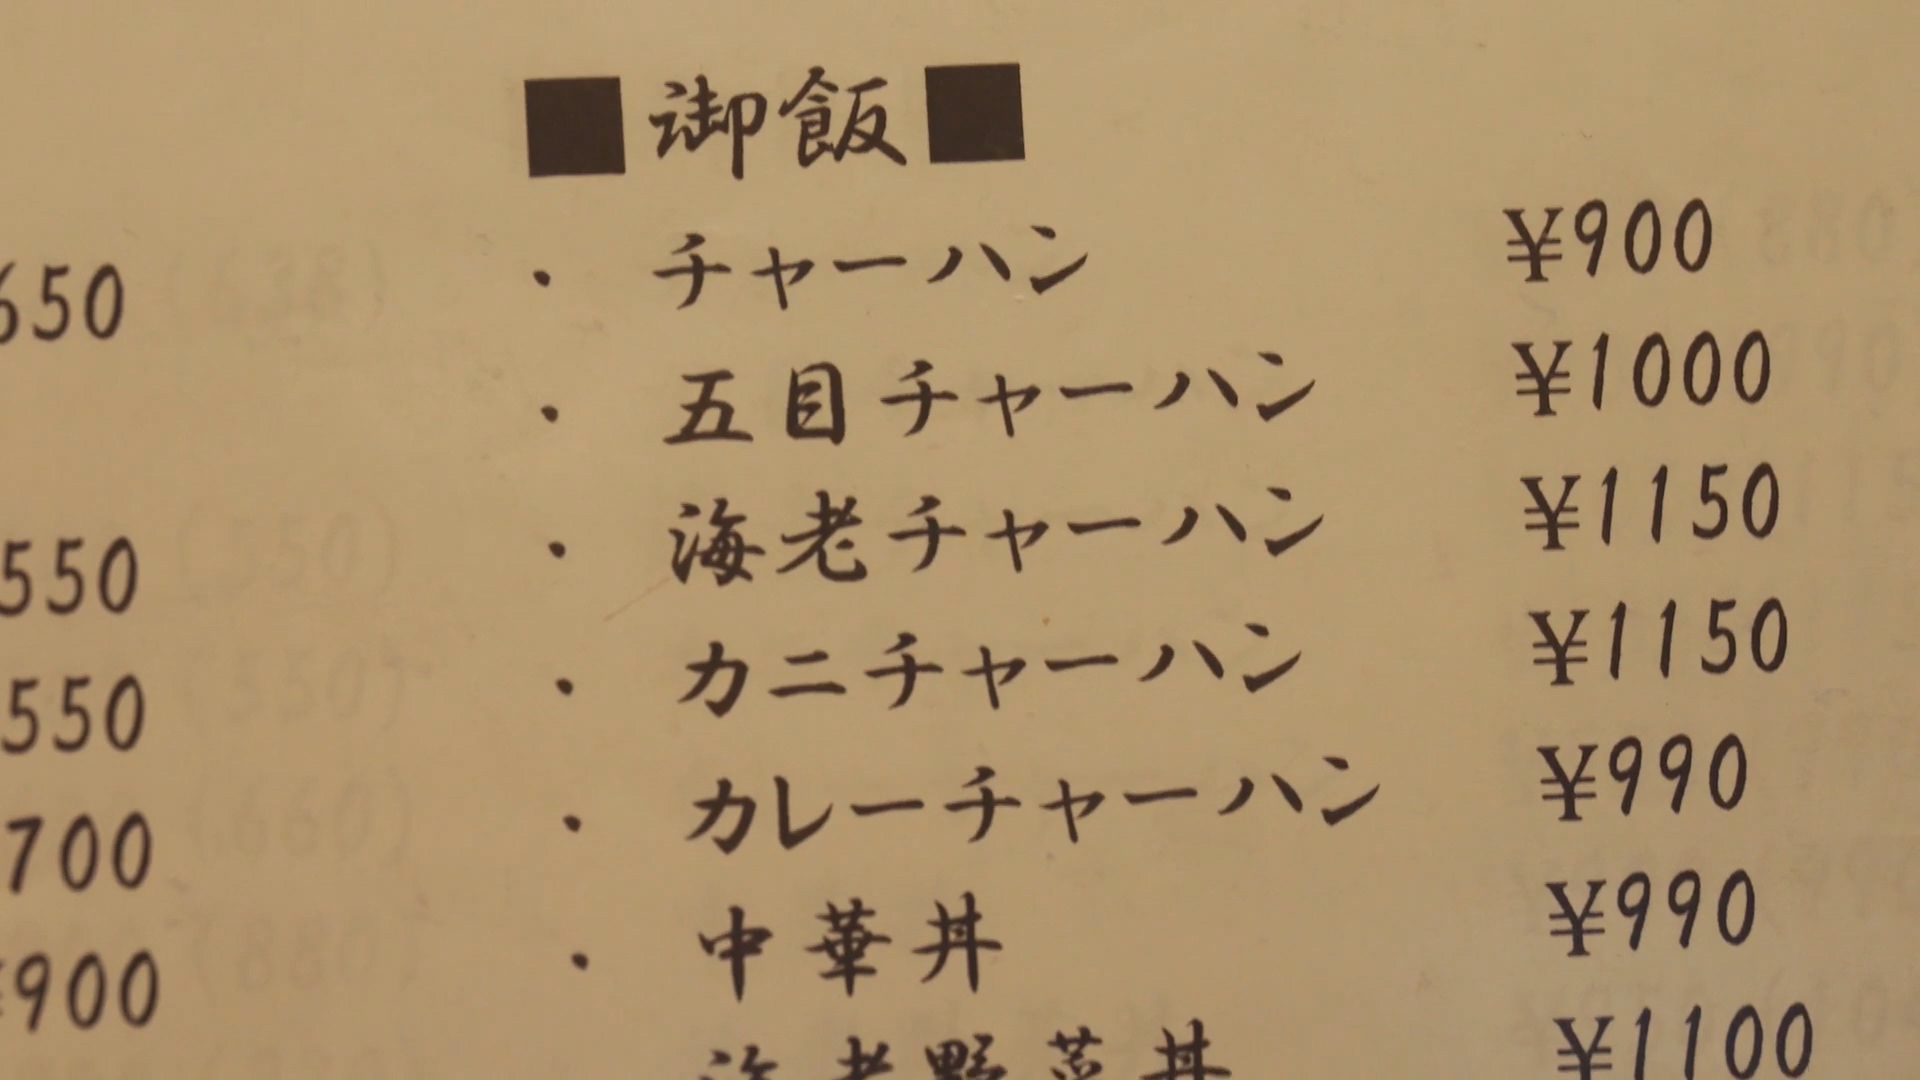 ■御飯■
・チャーハン ¥900
・五目チャーハン ¥1000
・海老チャーハン ¥1150
・カニチャーハン ¥1150
・カレーチャーハン ¥990
・中華丼 ¥990
海老野菜丼 ¥1100
650
550
550
700
¥900